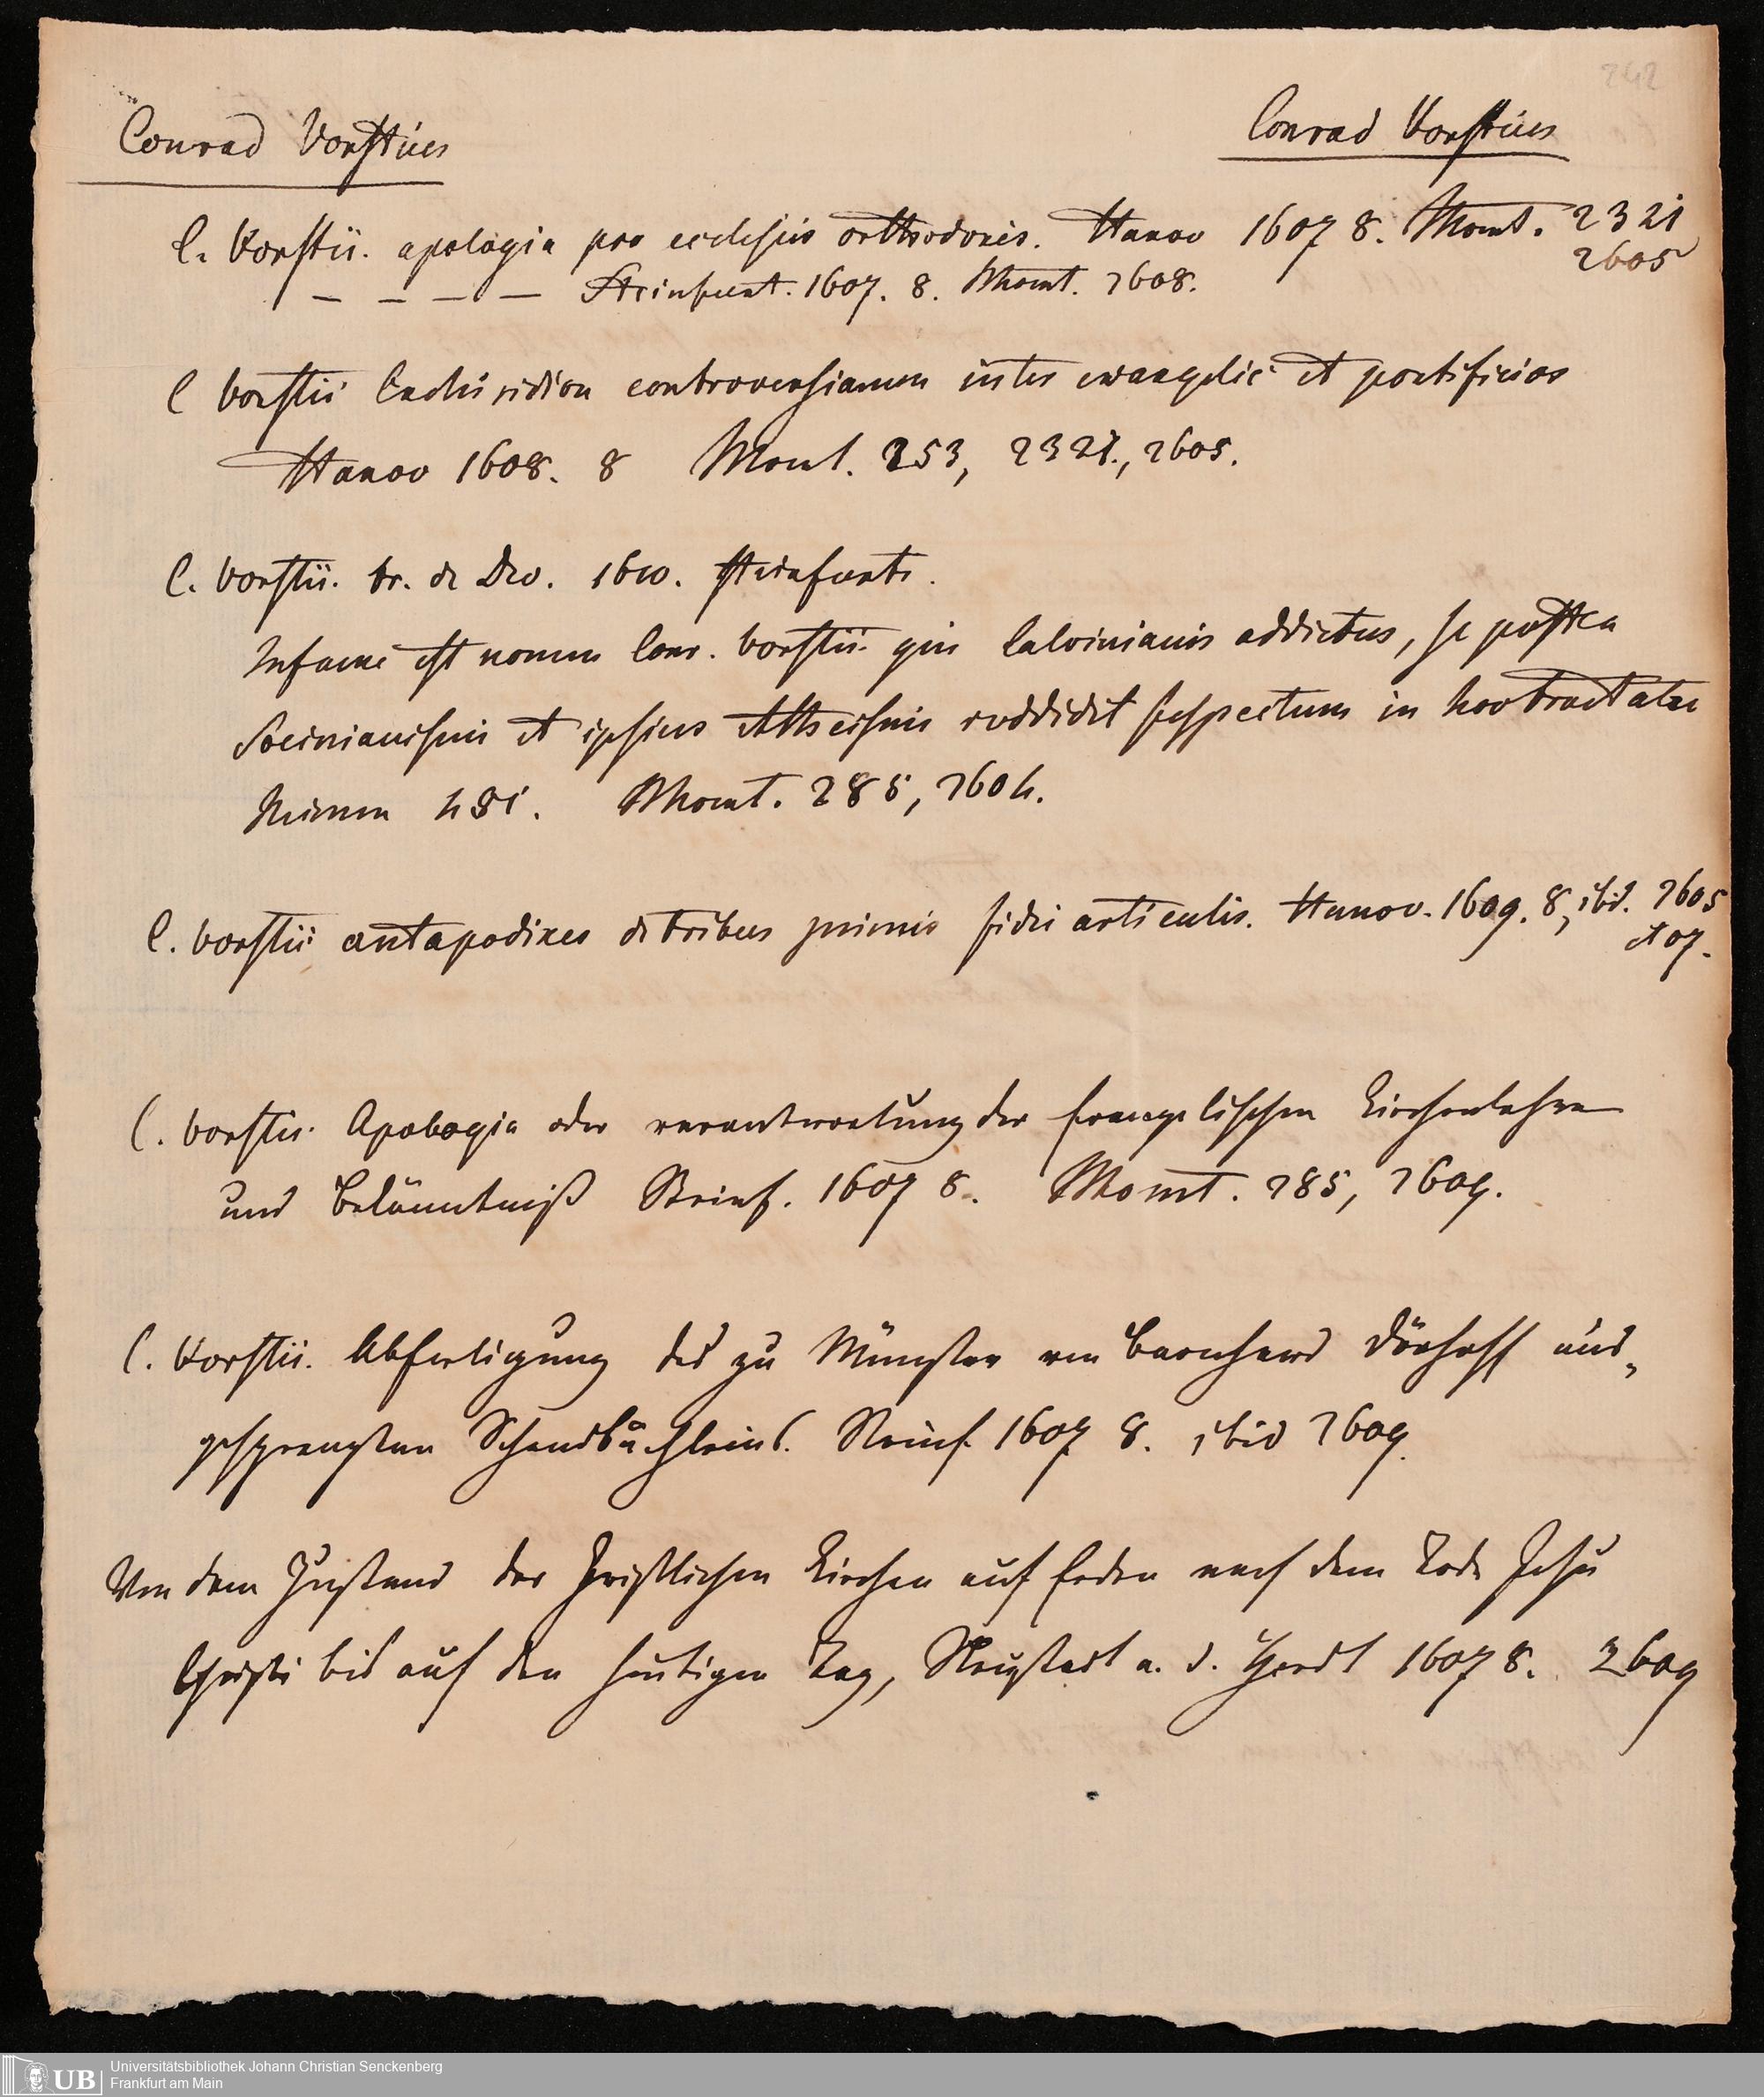 242
Conrad Vorstius
Conrad Vorstius
C. Vorstii. apologia pro ecclesiis orthodoxis. Hanov 1607 8. Momt. 2321
2605
— — — — Steinfurt. 1607. 8. Momt. 2608.
C Vorstii Enchiridion controversiarum inter evangelic et pontificios
Hanov 1608. 8 Momt. 253, 2321., 2605.
C. Vorstii. tr. de Deo. 1610. Steinfurti.
Infame est nomen Conr. Vorstii qui Calvinianis addictus, se postea
Socinianismi et ipsius Atheismi reddidit suspectum in hoc tractatu
Momt. 285, 2604.
C. Vorstii antapodixes de tribus primis fidei articulis. Hanov. 1609. 8, ibid. 2605
et 07.
C. Vorstii. Apologia oder verantwortung der Evangelischen Kirchenlehre
und Bekänntniß Steinf. 1607 8. Momt. 285, 2609.
C. Vorstii. Abfertigung des zu Münster von Bernhard Dörhoff aus„
gesprengten Schandbüchleins. Steinf. 1607 8. ibid 2609.
Von dem Zustand der Christlichen Kirchen auf Erden nach dem Tode Jesu
Christi bis auf den heutigen Tag, Neustadt a. d. Hardt 1607 8. 2609
UB
Universitätsbibliothek Johann Christian Senckenberg
Frankfurt am Main